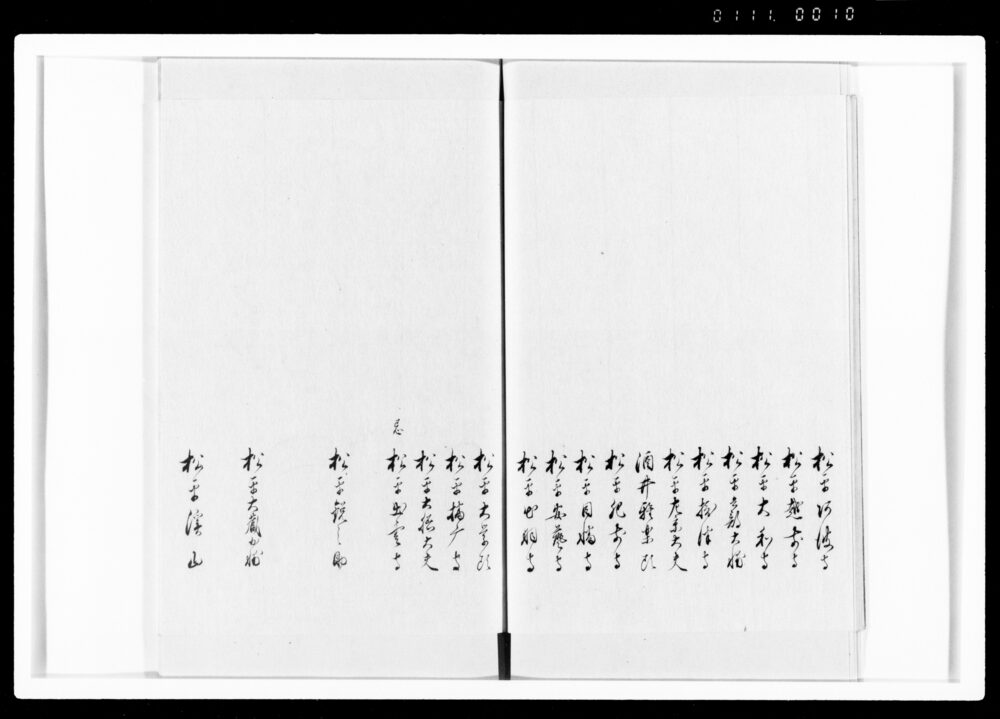 0111. 0010
松平阿波守
松平越前守
松平大和守
松平兵部大輔
松平摂津守
松平左京大夫
酒井雅楽頭
松平肥前守
松平因幡守
松平安藝守
松平出羽守
松平大学頭
松平播磨守
松平大膳大夫
松平出雲守
松平鋭之助
松平大蔵大輔
松平渓山